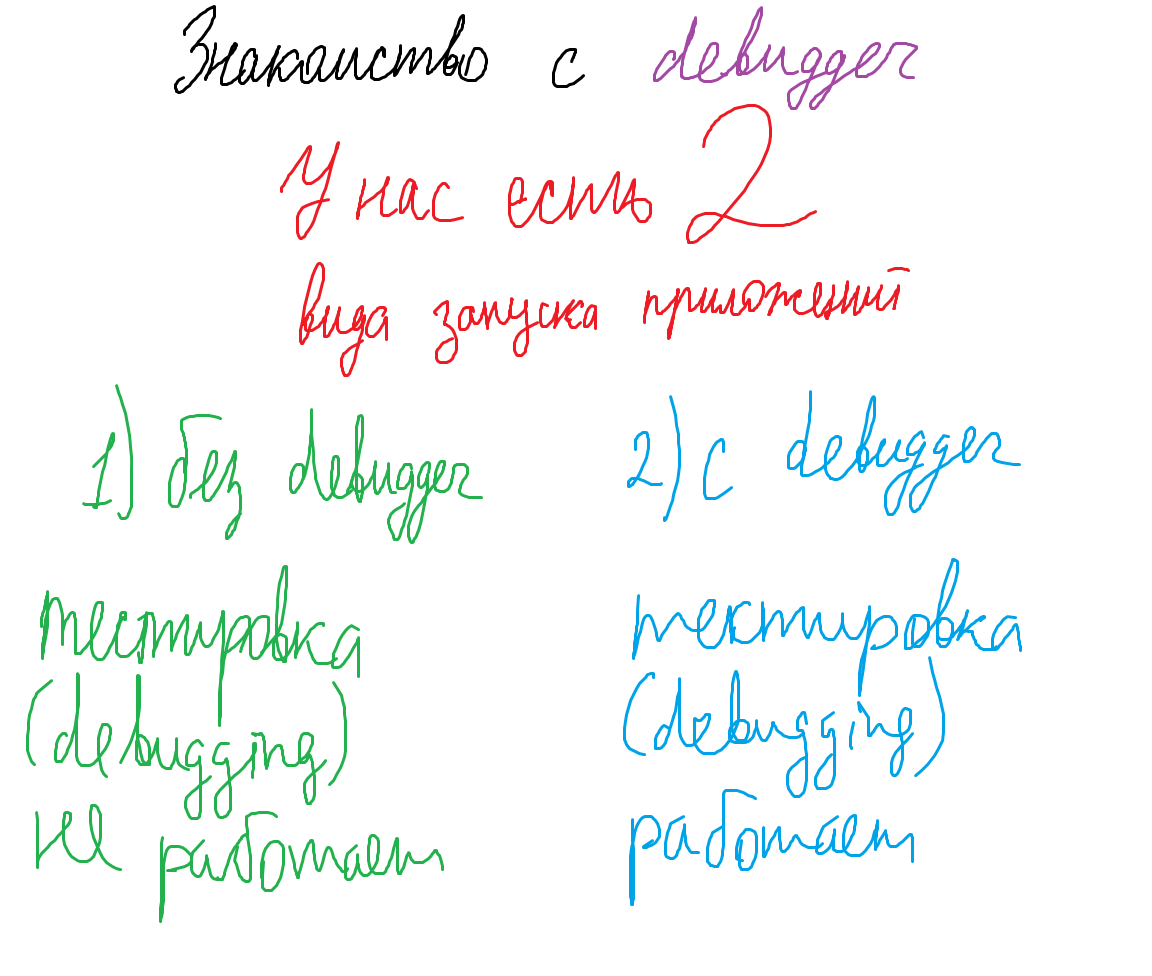 Знакомство с debugger
У нас есть 2
вида запуска приложений
1) без debugger
2) с debugger
тестировка
(debugging)
не работает
тестировка
(debugging)
работает